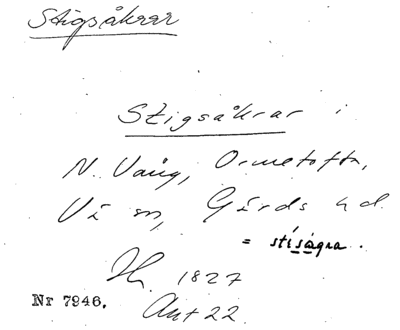 Stigsåkrar
Stigsåkrar i
N. Vång, Ormetofta,
Vä sn, Gärds hd.
= stíságra.
1827
Nr 7946. Akt 22